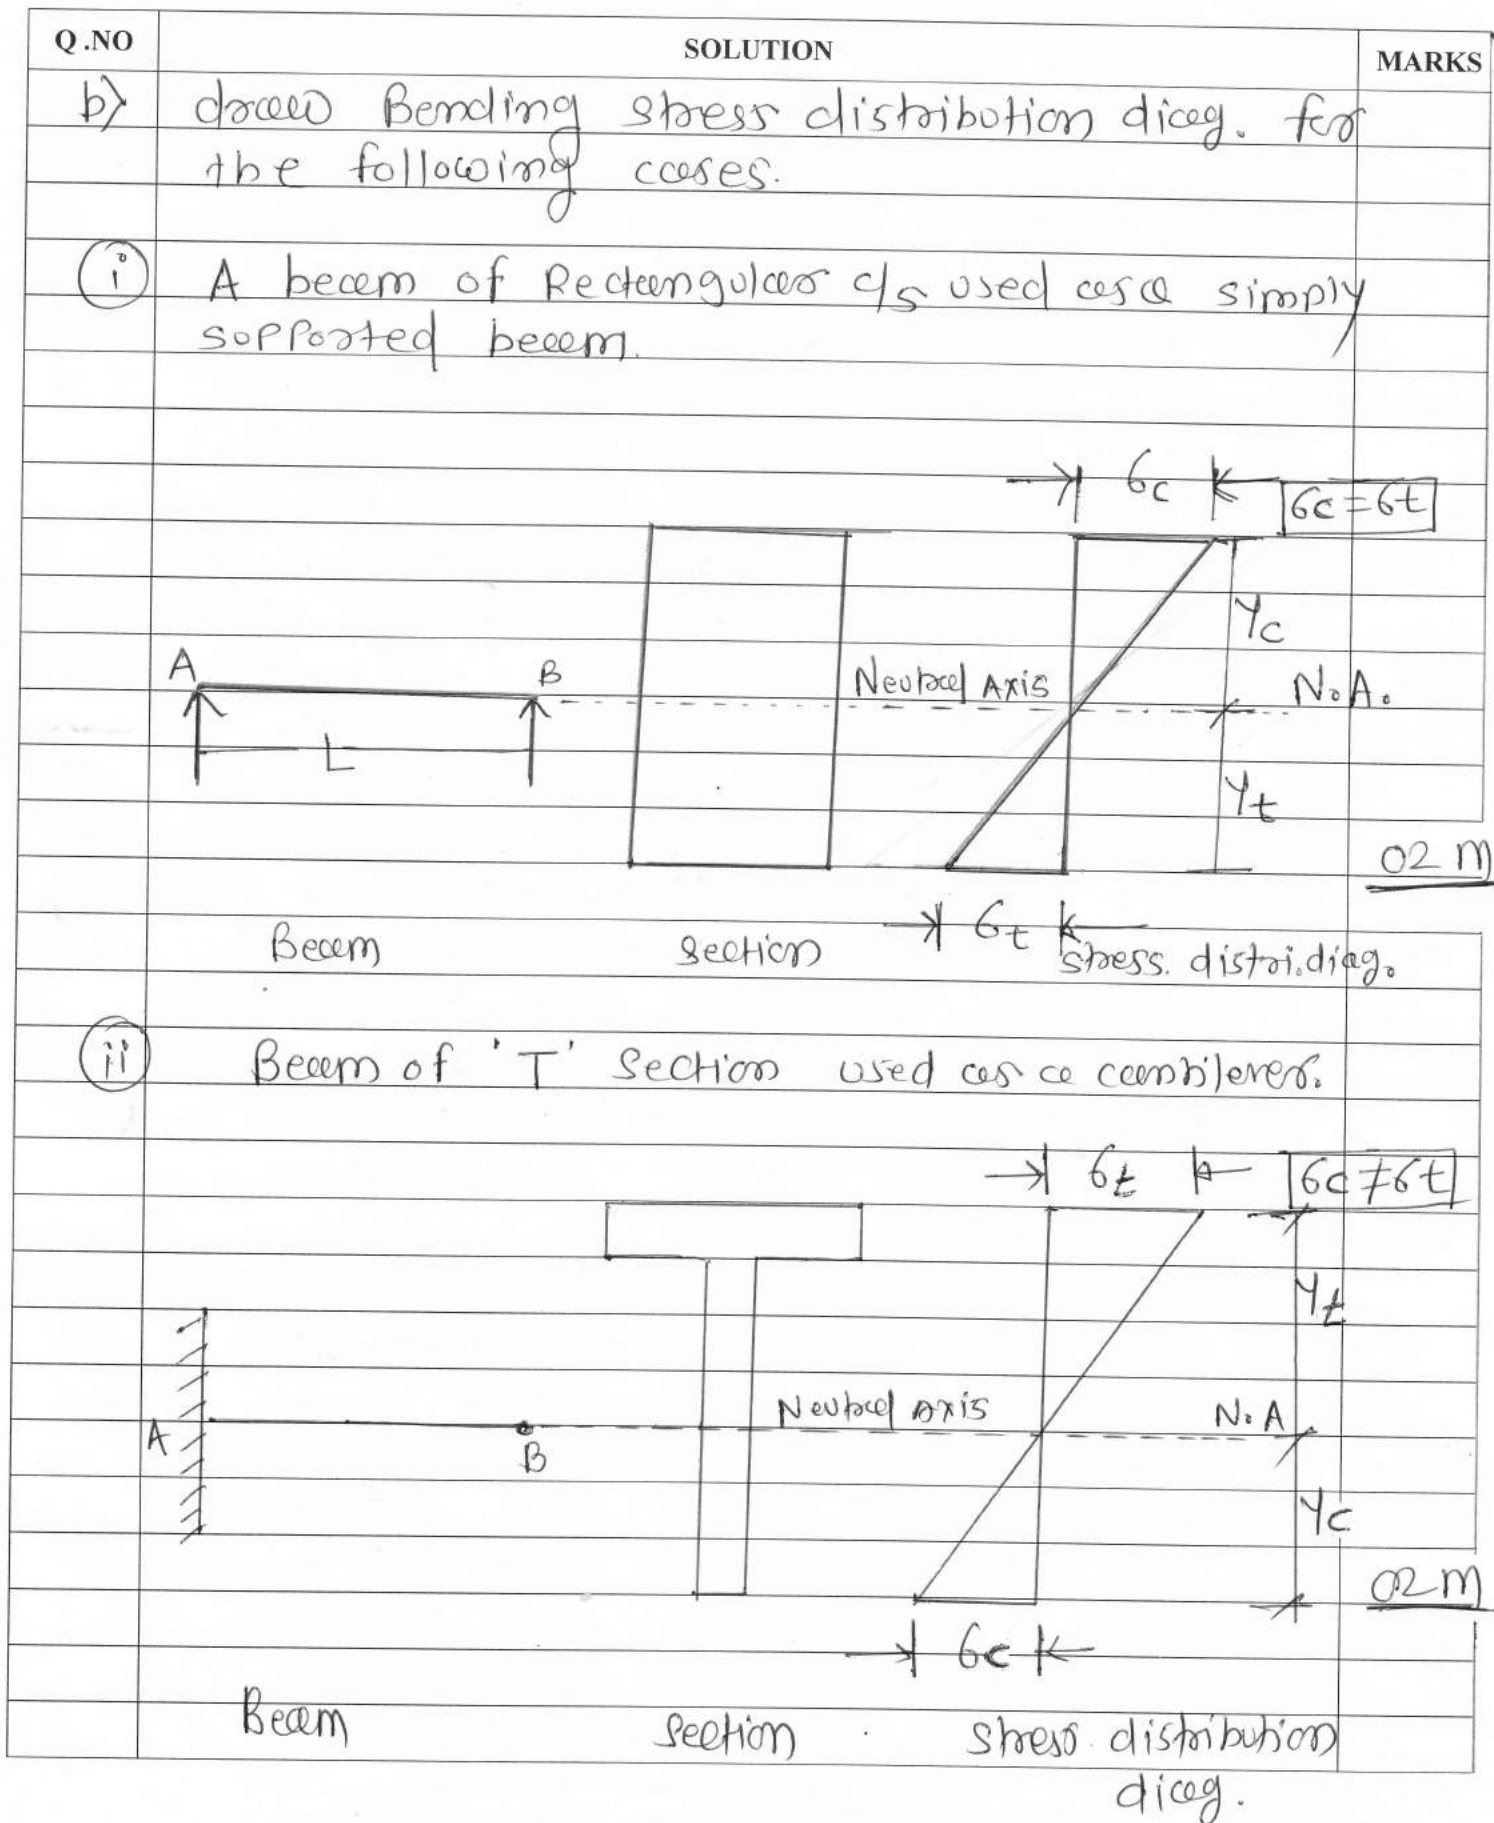 Q.NO SOLUTION MARKS
b) draw Bending stress distribution diag. for
the following cases.
i A beam of Rectangular c/s used as a simply
supported beam.
σc σc=σt
Yc
A B Neutral Axis N.A.
L
Yt
02 M
σt
Beam section stress. distri. diag.
ii Beam of 'T' section used as a cantilever.
σt σc≠σt
Yt
Neutral Axis N.A
A B
Yc
02 M
σc
Beam section stress distribution
diag.